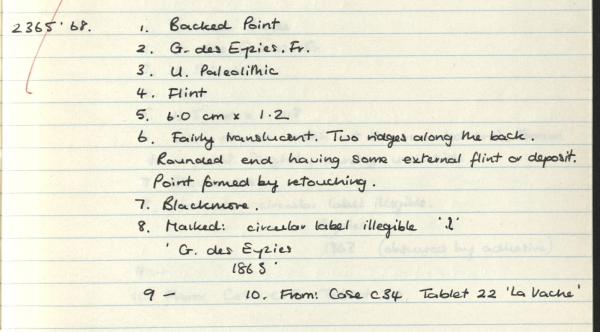 2365'68. 1. Backed Point
2. G. des Ezies. Fr.
3. U. Paleolithic
4. Flint
5. 6.0 cm x 1.2
6. Fairly translucent. Two ridges along the back.
Rounded end having some external flint or deposit.
Point formed by retouching.
7. Blackmore.
8. Marked: circular label illegible
'G. des Eyzies
1863'
9 - 10. From: Case C34, Tablet 22 'La Vache'